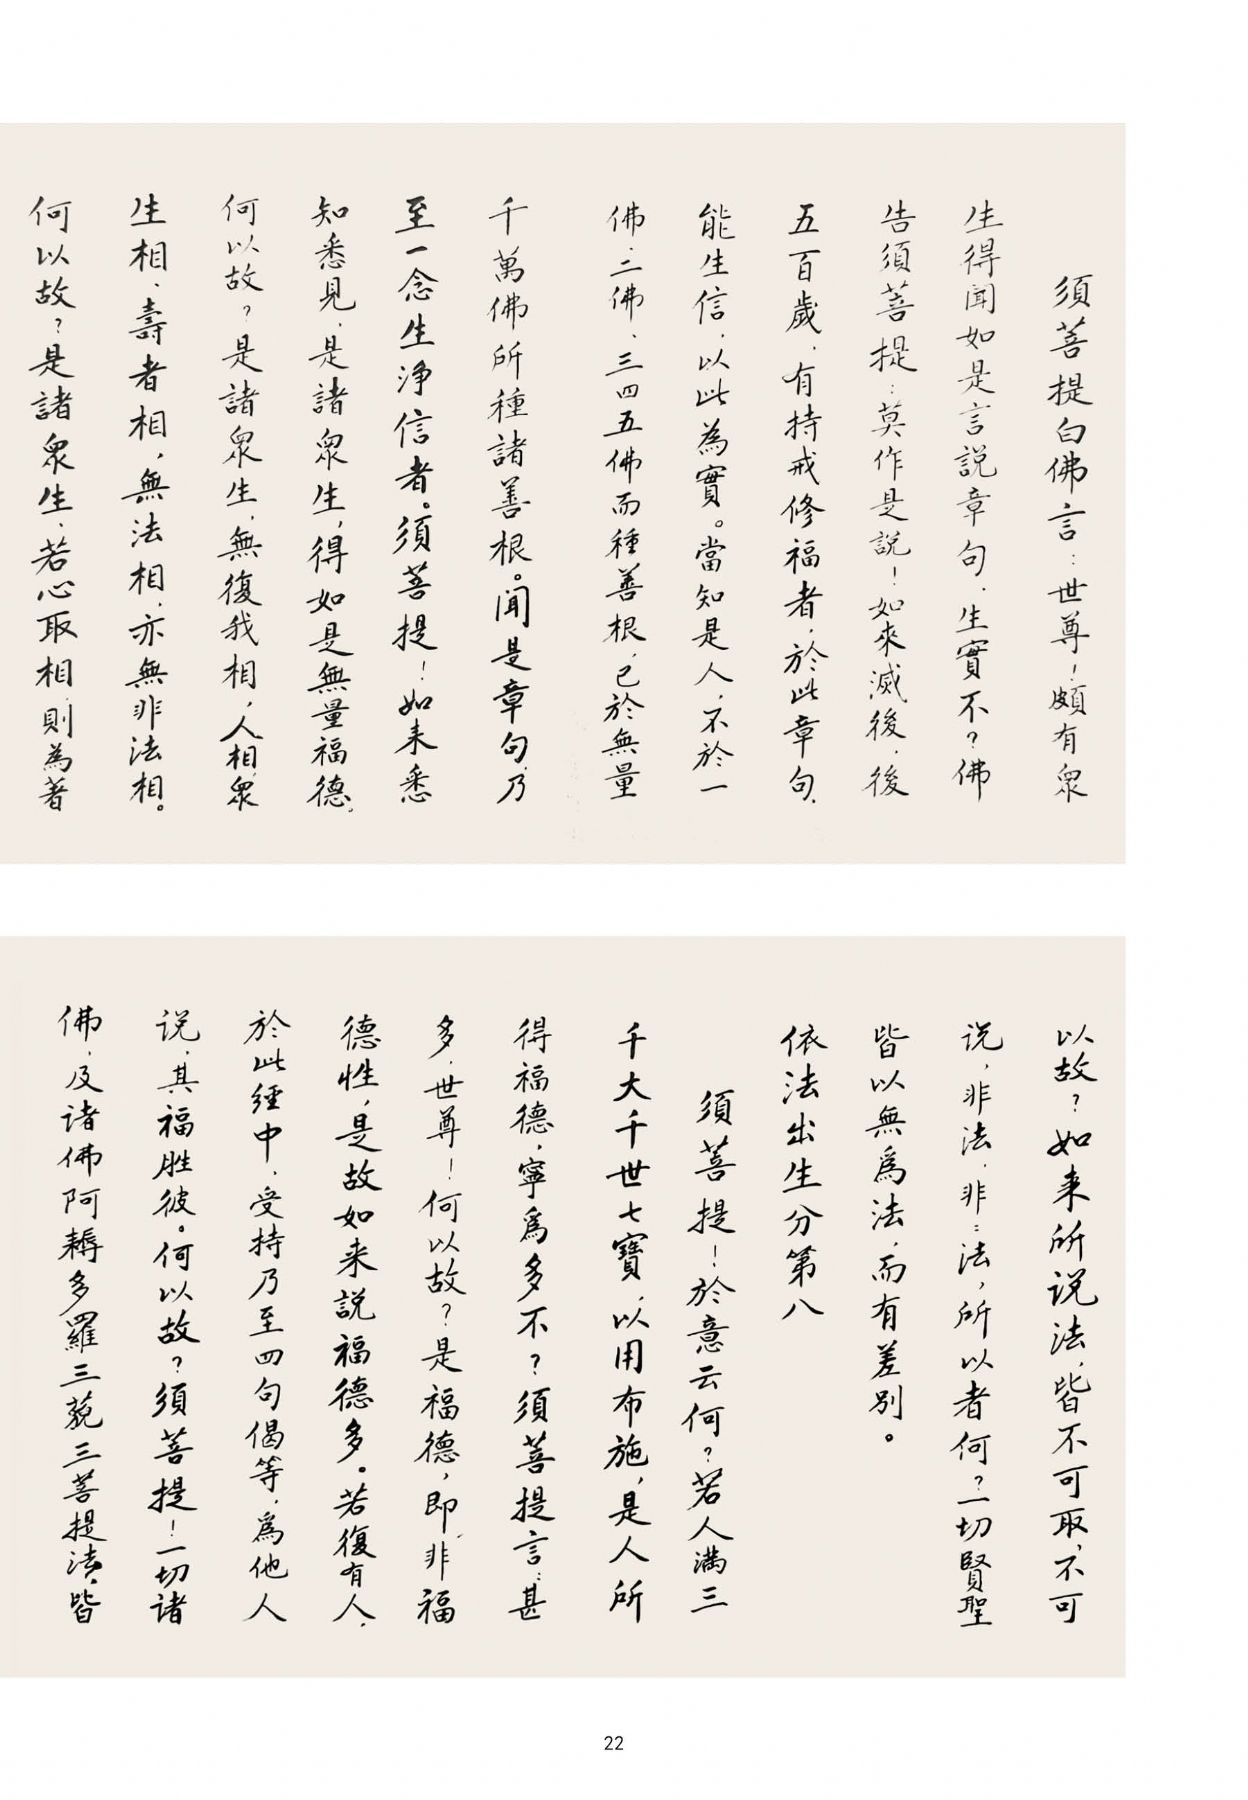 須菩提白佛言：世尊！頗有眾
生得聞如是言說章句，生實不？佛
告須菩提：莫作是說！如來滅後，後
五百歲，有持戒修福者，於此章句，
能生信，以此為實。當知是人，不於一
佛、二佛、三四五佛而種善根，已於無量
千萬佛所種諸善根。聞是章句，乃
至一念生淨信者。須菩提！如来悉
知悉見，是諸眾生，得如是無量福德。
何以故？是諸眾生，無復我相，人相，眾
生相、壽者相，無法相，亦無非法相。
何以故？是諸眾生，若心取相，則為著
以故？如来所说法，皆不可取，不可
说，非法，非：法，所以者何？一切賢聖
皆以無為法，而有差别。
依法出生分第八
須菩提！於意云何？若人满三
千大千世七寶，以用布施，是人所
得福德，寧爲多不？須菩提言：甚
多，世尊！何以故？是福德，即非福
德性，是故如来説福德多。若復有人，
於此經中，受持乃至四句偈等，爲他人
说，其福胜彼。何以故？須菩提！一切诸
佛，及诸佛阿耨多羅三藐三菩提法，皆
22